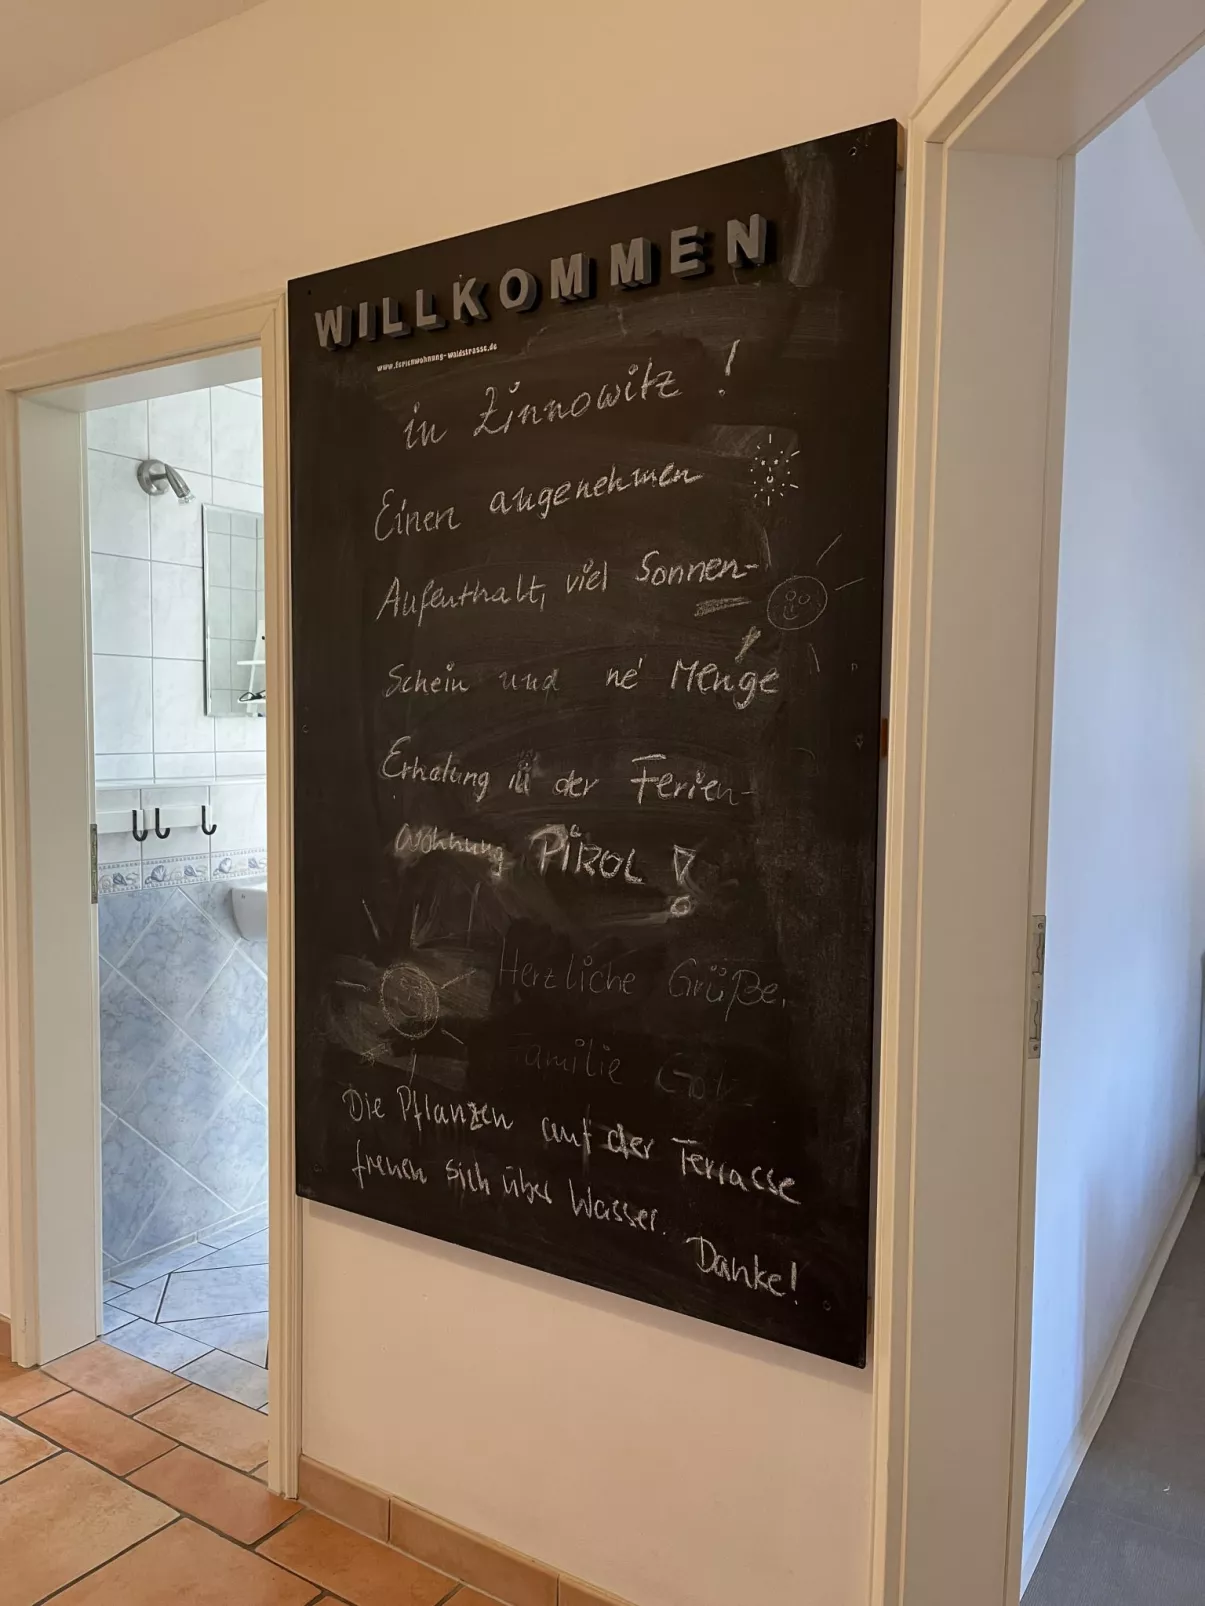 WILLKOMMEN
www.ferienwohnung-waldstrasse.de
in Zinnowitz !
Einen angenehmen
Aufenthalt, viel Sonnen-
Schein und ne' Menge
Erholung in der Ferien-
wohnung PIROL !
Herzliche Grüße,
Familie
Die Pflanzen auf der Terrasse
freuen sich über Wasser.
Danke!